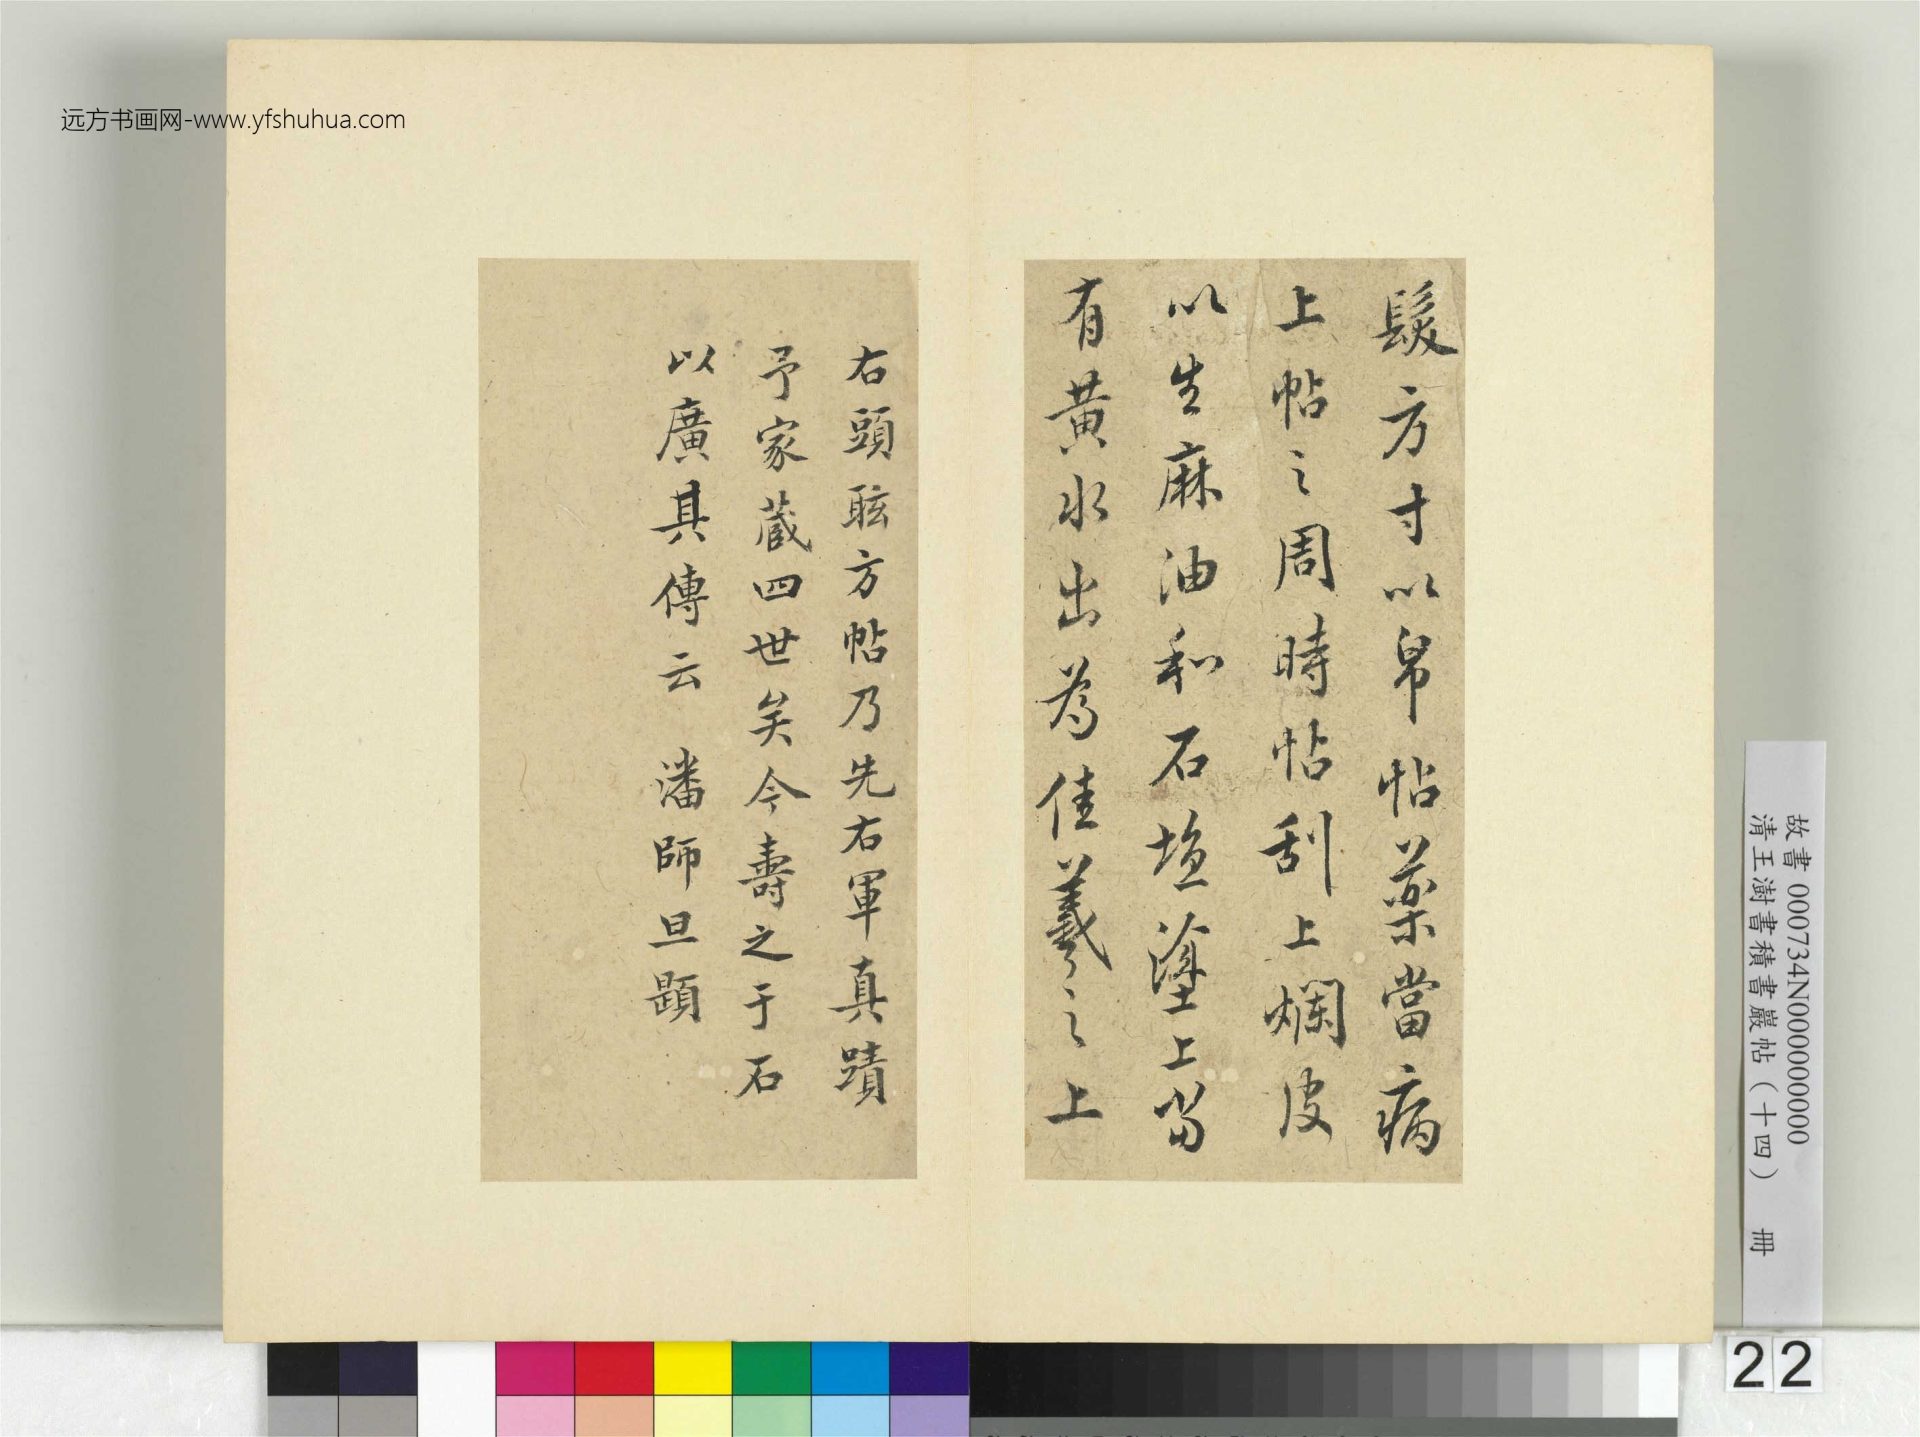 远方书画网-www.yfshuhua.com
髮方寸以帛帖藥當病
上帖之周時帖刮上爛皮
以生麻油和石塩塗上当
有黄水出為佳羲之上
右頭眩方帖乃先右軍真蹟
予家蔵四世矣今壽之于石
以廣其傳云 潘師旦題
故書 000734N000000000
清王澍書積書巖帖（十四） 冊
22